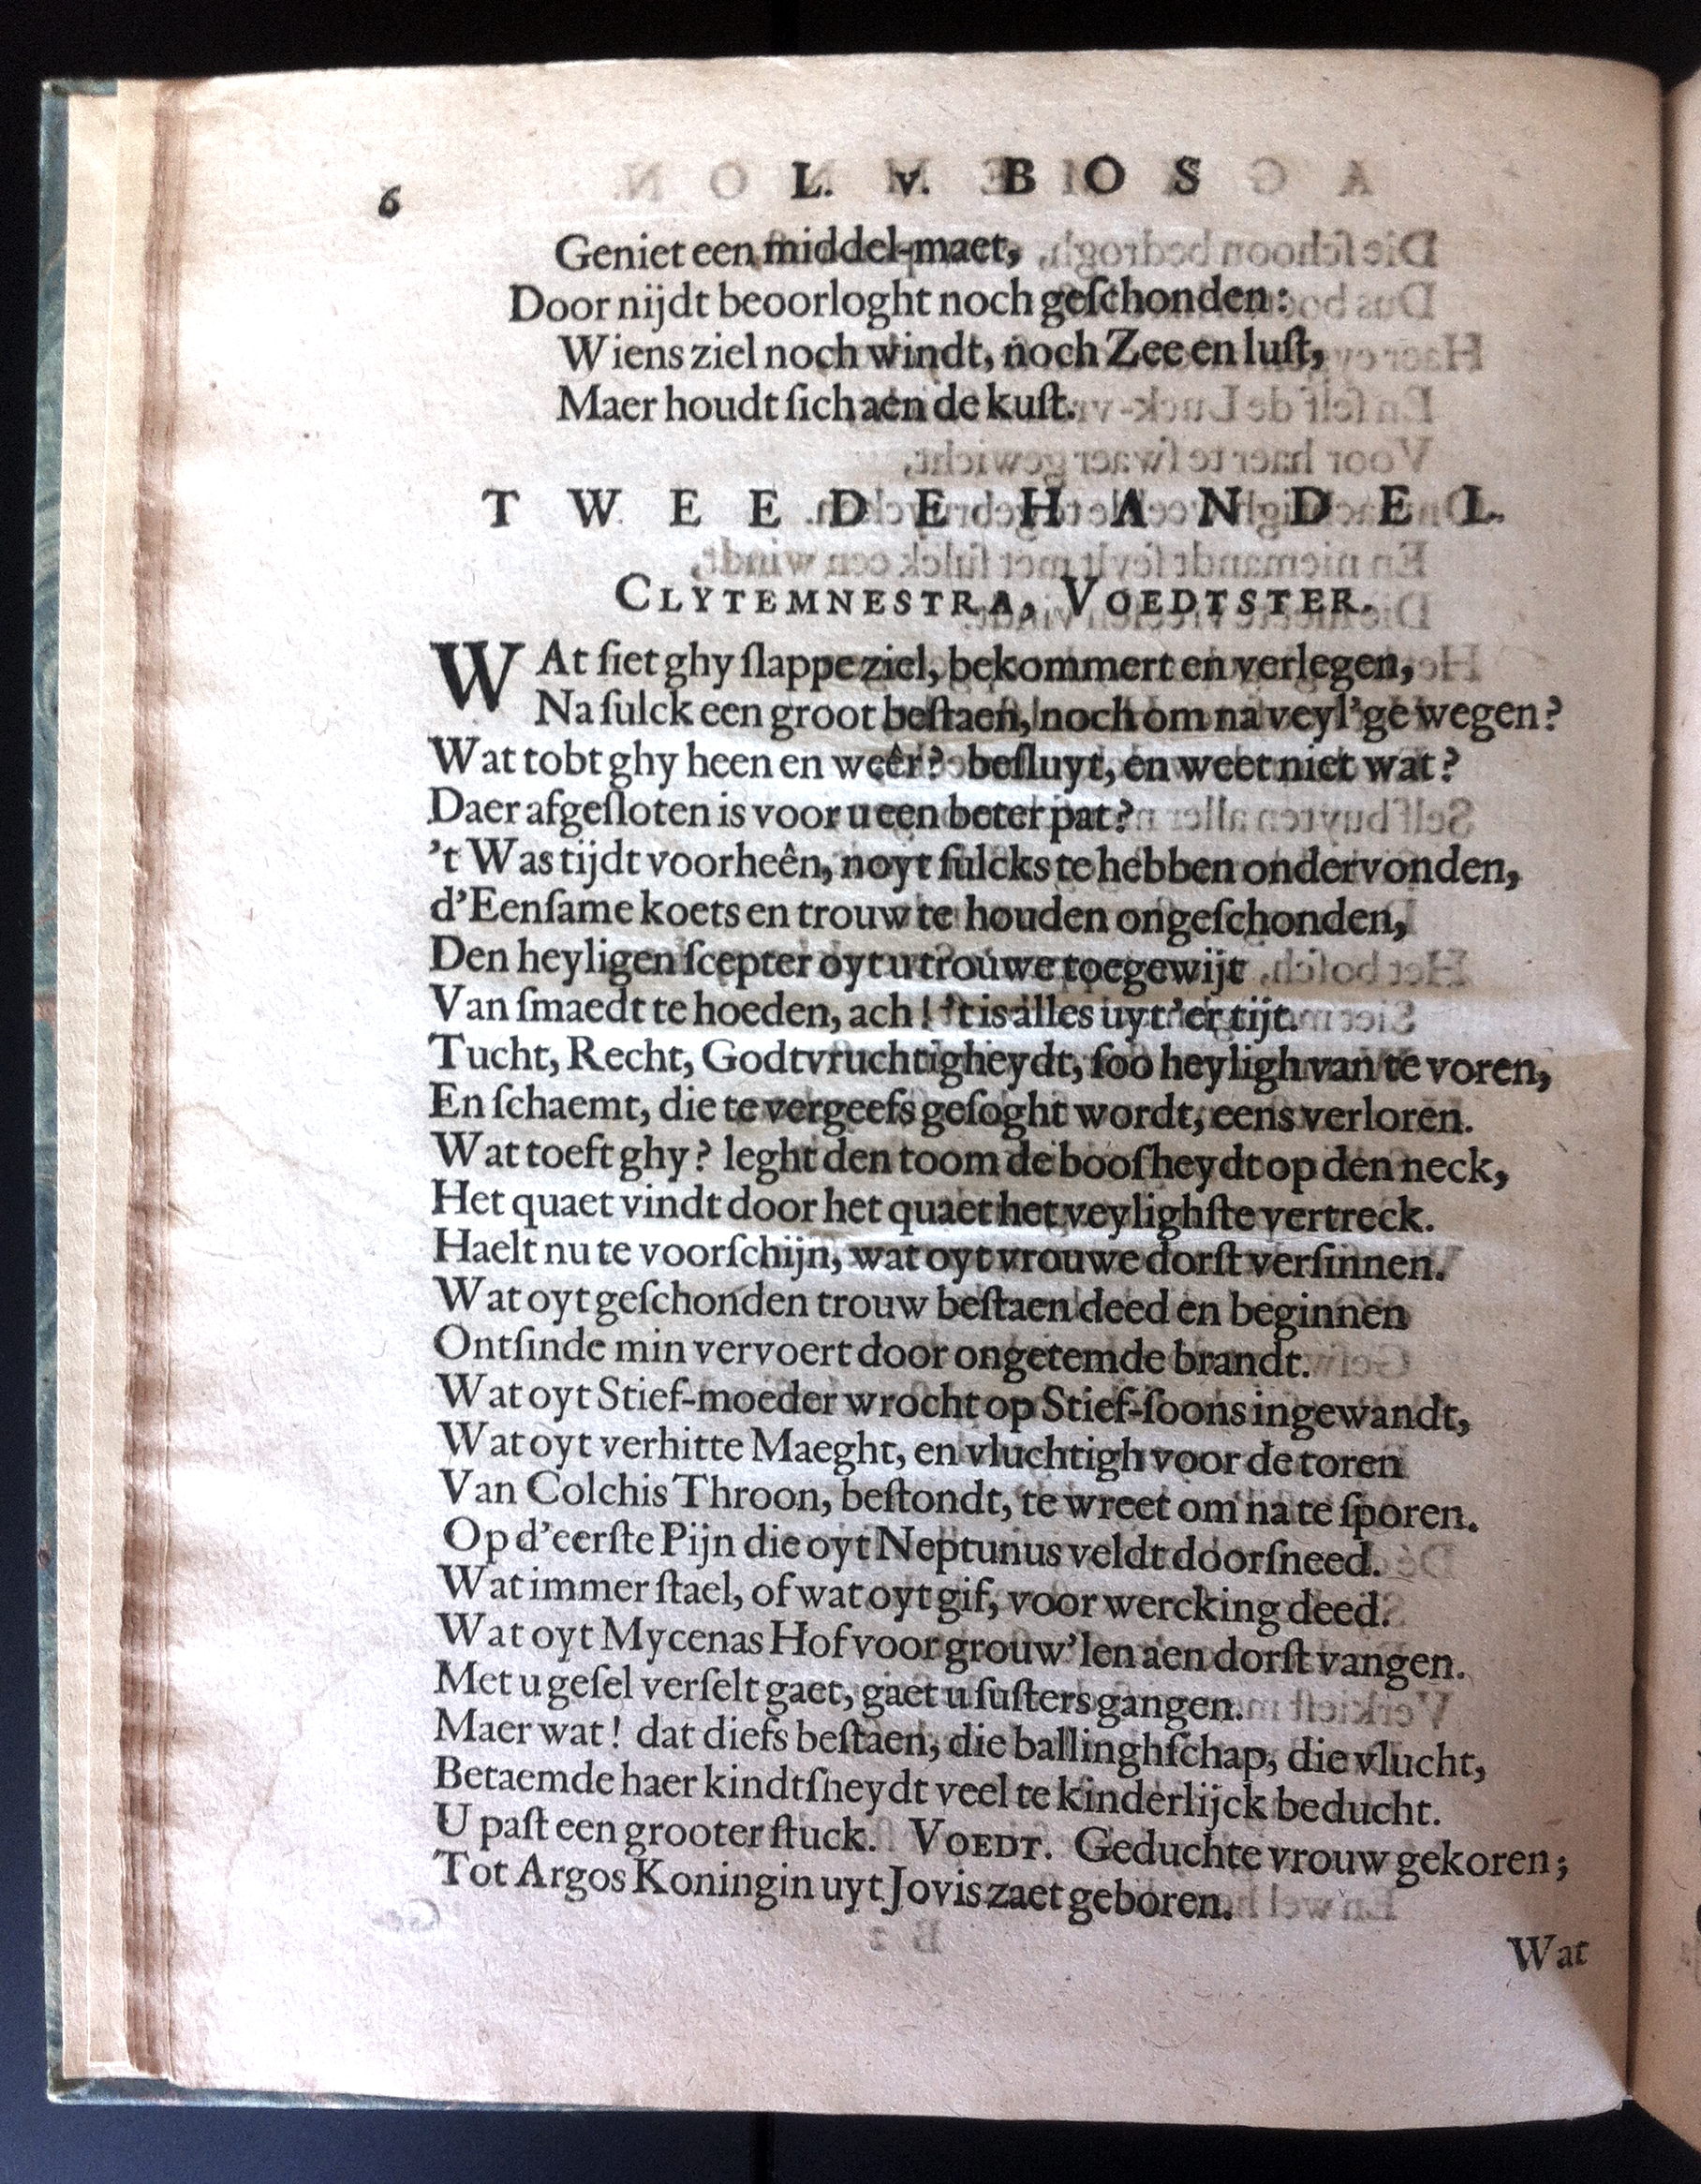 6
L. v. BOS
Geniet een middel-maet,
Door nijdt beoorloght noch geſchonden:
Wiens ziel noch windt, noch Zee en luſt,
Maer houdt ſich aen de kuſt.
TWEEDE HANDEL.
CLYTEMNESTRA, VOEDTSTER.
WAt ſiet ghy ſlappe ziel, bekommert en verlegen,
Na ſulck een groot beſtaen, noch om na veyl'ge wegen?
Wat tobt ghy heen en weêr? beſluyt, en weet niet wat?
Daer afgeſloten is voor u een beter pat?
't Was tijdt voorheên, noyt ſulcks te hebben ondervonden,
d'Eenſame koets en trouw te houden ongeſchonden,
Den heyligen ſcepter oyt u trouwe toegewijt
Van ſmaedt te hoeden, ach! 't is alles uyt 'er tijt.
Tucht, Recht, Godtvruchtigheydt, ſoo heyligh van te voren,
En ſchaemt, die te vergeefs geſoght wordt, eens verloren.
Wat toeft ghy? leght den toom de booſheydt op den neck,
Het quaet vindt door het quaet het veylighſte vertreck.
Haelt nu te voorſchijn, wat oyt vrouwe dorſt verſinnen.
Wat oyt geſchonden trouw beſtaen deed en beginnen
Ontſinde min vervoert door ongetemde brandt.
Wat oyt Stief-moeder wrocht op Stief-ſoons ingewandt,
Wat oyt verhitte Maeght, en vluchtigh voor de toren
Van Colchis Throon, beſtondt, te wreet om na te ſporen.
Op d'eerſte Pijn die oyt Neptunus veldt doorſneed.
Wat immer ſtael, of wat oyt gif, voor wercking deed.
Wat oyt Mycenas Hof voor grouw'len aen dorſt vangen.
Met u geſel verſelt gaet, gaet u ſuſters gangen.
Maer wat! dat diefs beſtaen, die ballinghſchap, die vlucht,
Betaemde haer kindtſheydt veel te kinderlijck beducht.
U paſt een grooter ſtuck. VOEDT. Geduchte vrouw gekoren;
Tot Argos Koningin uyt Jovis zaet geboren.
Wat